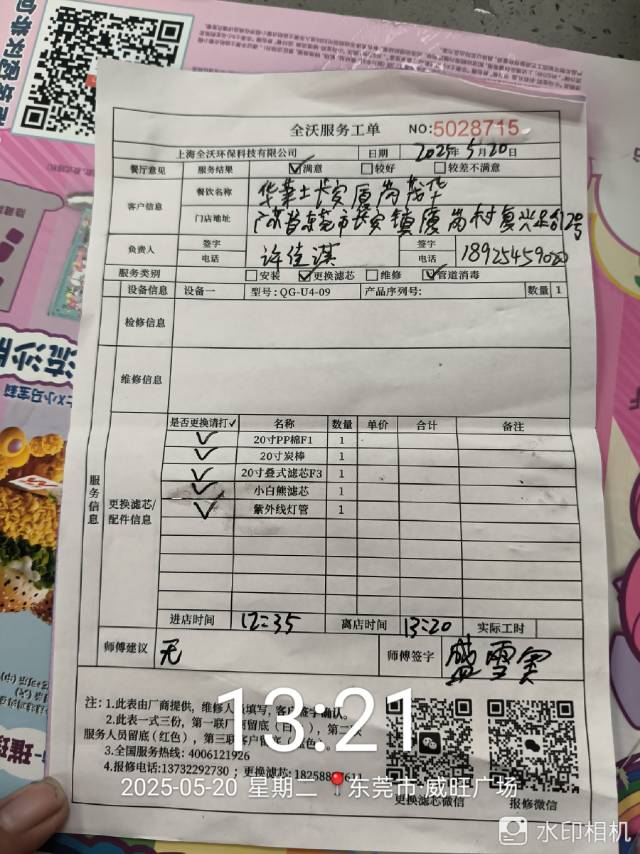 全沃服务工单 NO:5028715
上海全沃环保科技有限公司 日期 2025年5月20日
餐厅意见 服务结果 ☑满意 □较好 □较差不满意
客户信息 餐饮名称 华莱士长安厦岗茂华
门店地址 广东省东莞市长安镇厦岗村复兴
负责人 签字 许佳淇 签字
电话 电话
服务类别 □安装 ☑更换滤芯 □维修 ☑管道消毒
设备信息 设备一 型号:QG-U4-09 产品序列号: 数量 1
检修信息
维修信息
服务信息
更换滤芯/配件信息
是否更换请打✓ 名称 数量 单价 合计 备注
✓ 20寸PP棉F1 1
✓ 20寸炭棒 1
✓ 20寸叠式滤芯F3 1
✓ 小白熊滤芯 1
✓ 紫外线灯管 1
进店时间 12:35 离店时间 13:20 实际工时
师傅建议 无 师傅签字 盛雪
注:1.此表由厂商提供,维修人员填写,客户签字确认。
2.此表一式三份,第一联厂商留底(白),第二联
服务人员留底(红色),第三联客户留
3.全国服务热线:4006121926
4.报修电话:13732292730;更换滤芯:
更换滤芯微信 报修微信
13:21
2025-05-20 星期二 东莞市·威旺广场
水印相机